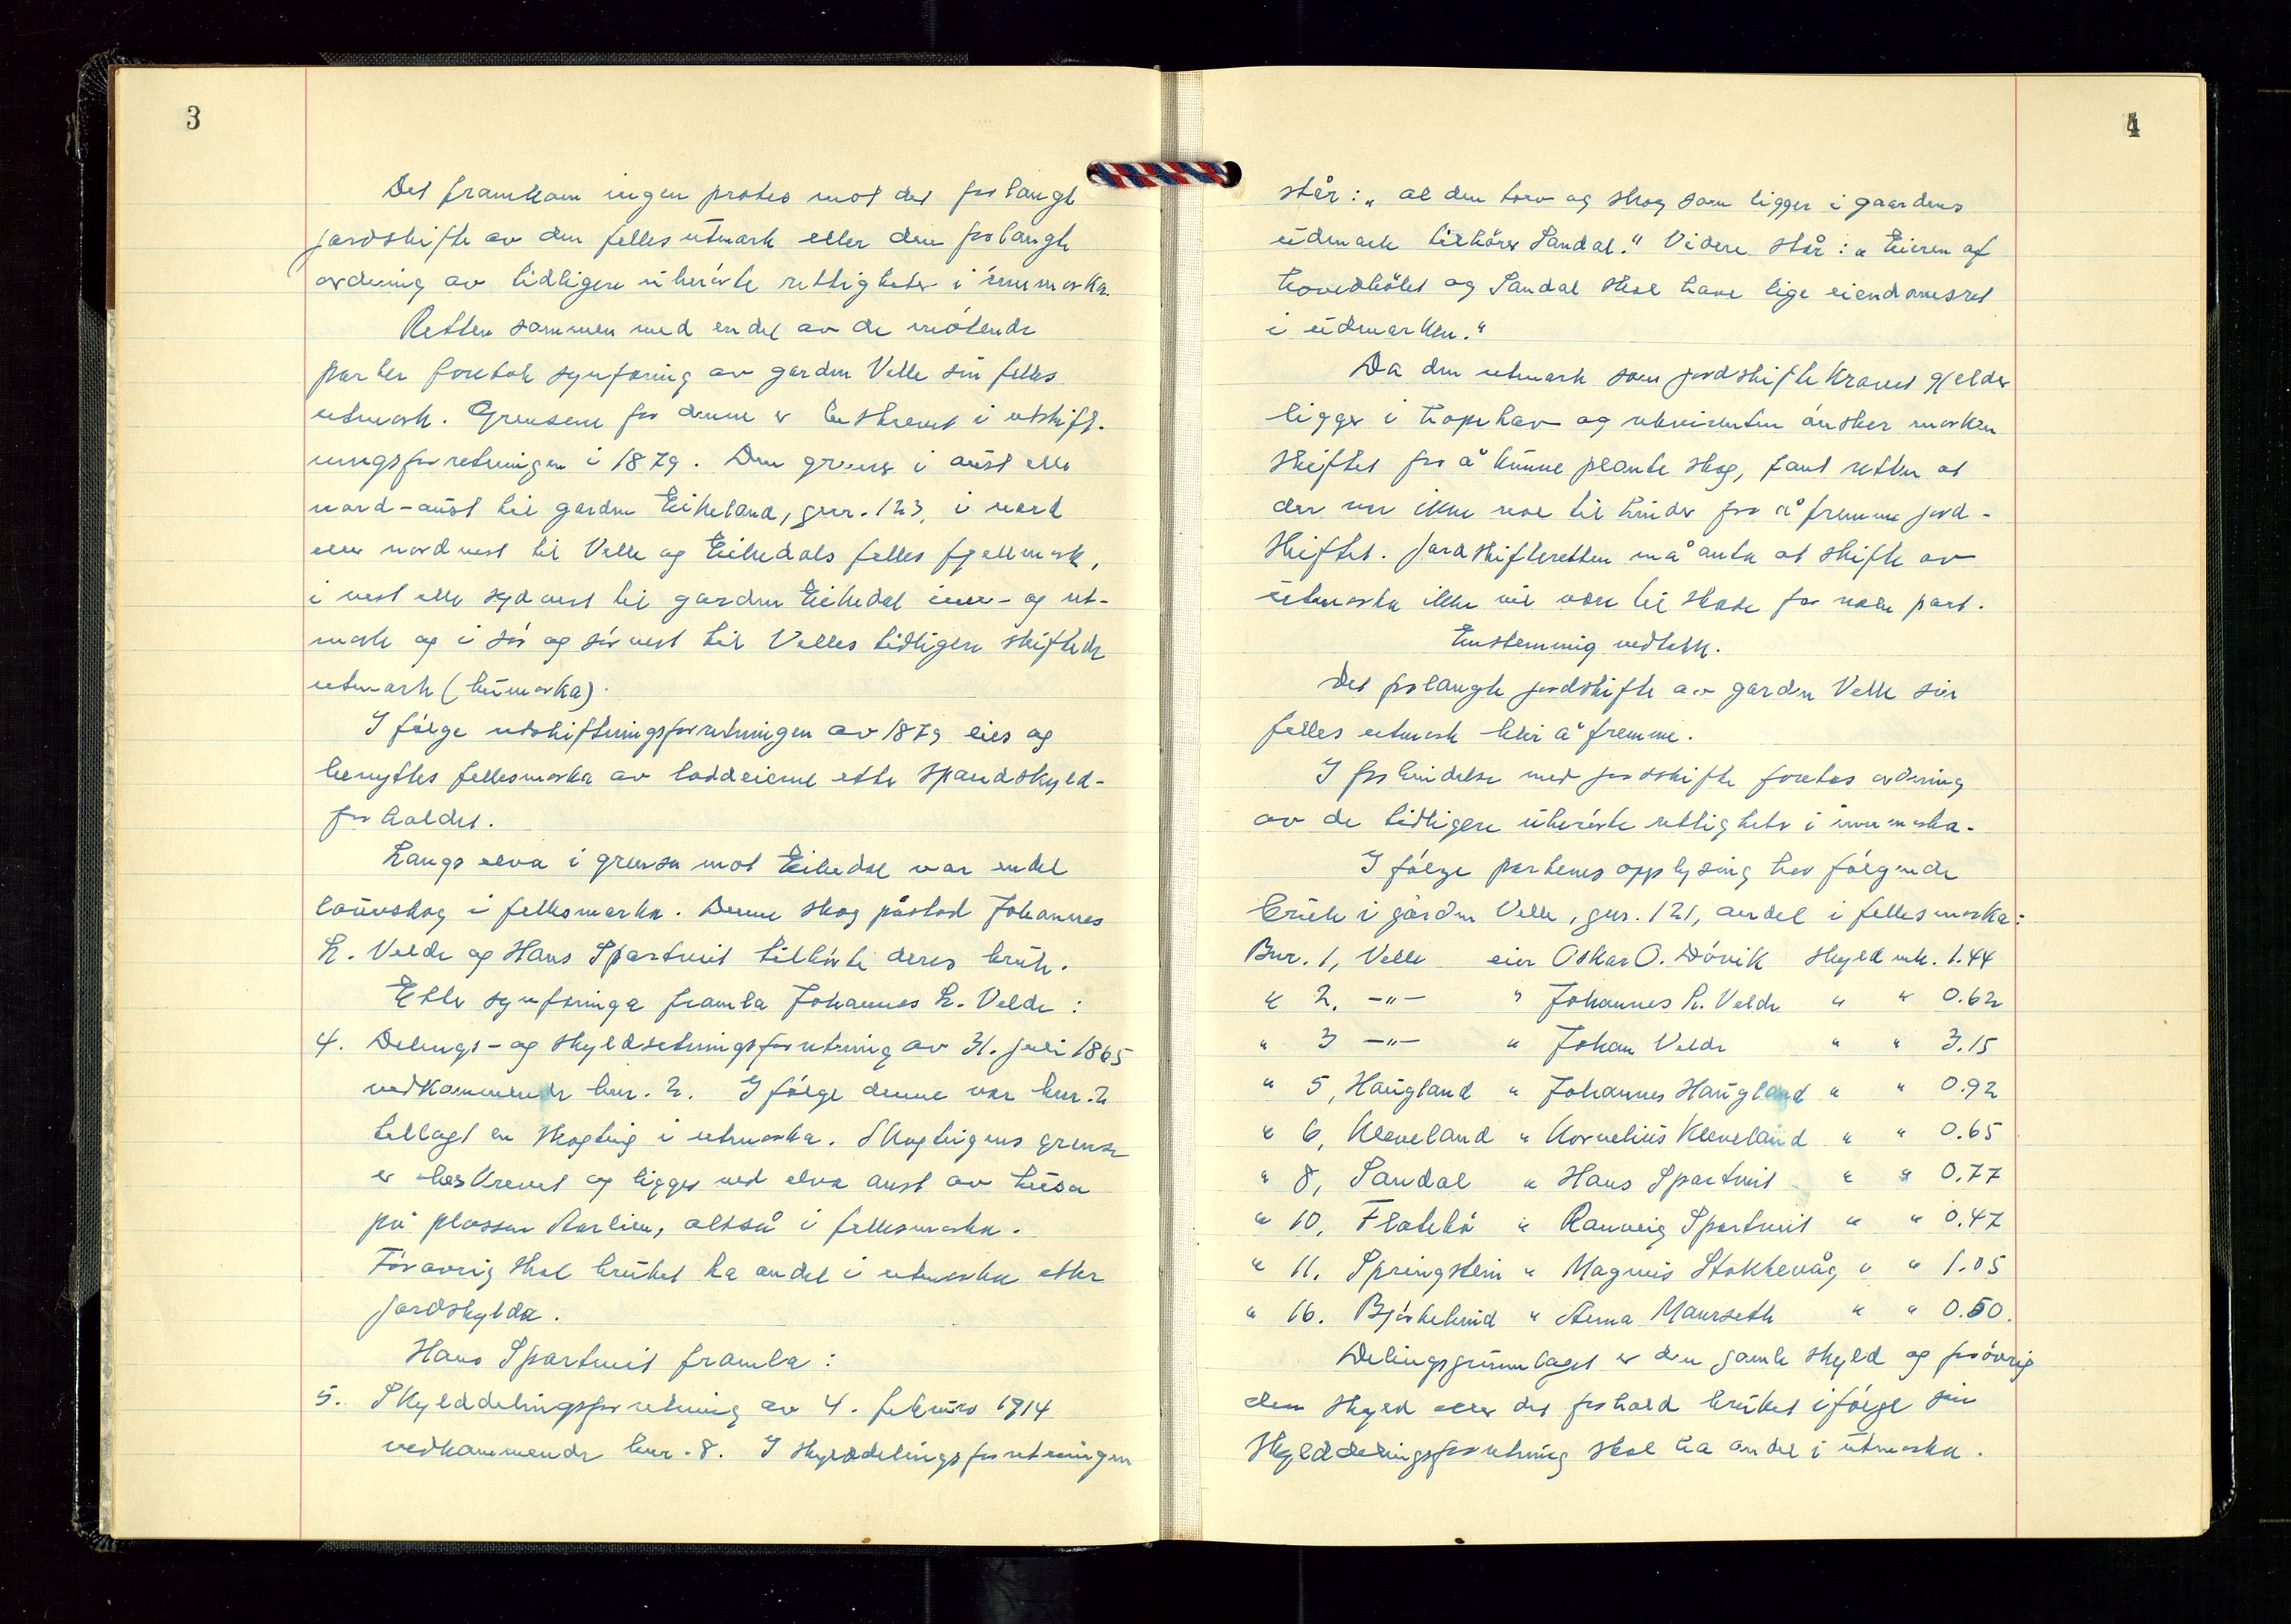 3
Det framkom ingen protes mot det forlangte
jordskifte av den felles utmark eller den forlangte
ordning av tidligere uheivte rettigheter i innmarka.
Retten sammen med en del av de møtende
parter foretok synfaring av garden Velle sin felles
utmark. Grensene for denne er beskrevet i utskift-
ningsforretningen i 1879. Den grenser i aust eller
nord-aust til garden Eikeland, gnr. 123, i nord
eller nordvest til Velle og Eikedals felles fjellmark,
i vest eller sydvest til garden Eikedal inn- og ut-
mark og i sør og sørvest til Velles tidligere skiftede
utmark (heimarka).
I følge utskiftningsforretningen av 1879 eies og
benyttes fellesmarka av loddeierne etter spandskyld-
forholdet.
Langs elva i grensa mot Eikedal var en del
lauvskog i fellesmarka. Denne skog påstod Johannes
L. Velde og Hans Spartveit tilhørte deres bruk.
Etter synfaringa framla Johannes L. Velde :
4. Delings- og skyldsetningsforretning av 31. juli 1865
vedkommende bnr. 2. I følge denne var bnr. 2
tillagt en skogteig i utmarka. Skogteigens grense
er beskrevet og ligger ved elva aust av husa
på plassen Aarlien, altså i fellesmarka.
Forøvrig skal bruket ha andel i utmarka etter
jordskylda.
Hans Spartveit framla :
5. Skylddelingsforretning av 4. februar 1914
vedkommende bnr. 8. I skylddelingsforretningen
4
står : „ al den torv og skog som ligger i gaardens
udmark tilhører Sandal." Videre står : „ Eieren af
hovedbølet og Sandal skal have lige eiendomsret
i udmarken."
Da den utmark som jordskiftekravet gjelder
ligger i tropehav og rekvirenten ønsker marken
skiftet for å kunne plante skog, fant retten at
der var ikke noe til hinder for å fremme jord-
skiftet. Jordskifteretten må anta at skifte av
utmarka ikke vil være til skade for noen part.
Enstemmig vedtakk.
Det forlangte jordskifte av garden Velle sin
felles utmark blir å fremme.
I forbindelse med jordskifte foretas ordning
av de tidligere uheivte rettigheter i innmarka.
I følge partenes opplysing har følgende
bruk i garden Velle, gnr. 121, andel i fellesmarka :
Bnr. 1, Velle eier Oskar O. Døvik skyld mk. 1.44
" 2. -"- " Johannes L. Velde " " 0.62
" 3 -"- " Johan Velde " " 3.15
" 5, Haugland " Johannes Haugland " " 0.92
" 6, Kleveland " Kornelius Kleveland " " 0.65
" 8, Sandal " Hans Spartveit " " 0.77
" 10, Flatebø " Rannveig Spartveit " " 0.47
" 11. Springstein " Magnus Stokkevåg " " 1.05
" 16. Bjørkelund " Anna Maurseth " " 0.50.
Delingsgrunnlaget er den gamle skyld og forøvrig
den skyld eller det forhold bruket ifølge sin
skylddelingsforretning skal ha andel i utmarka.